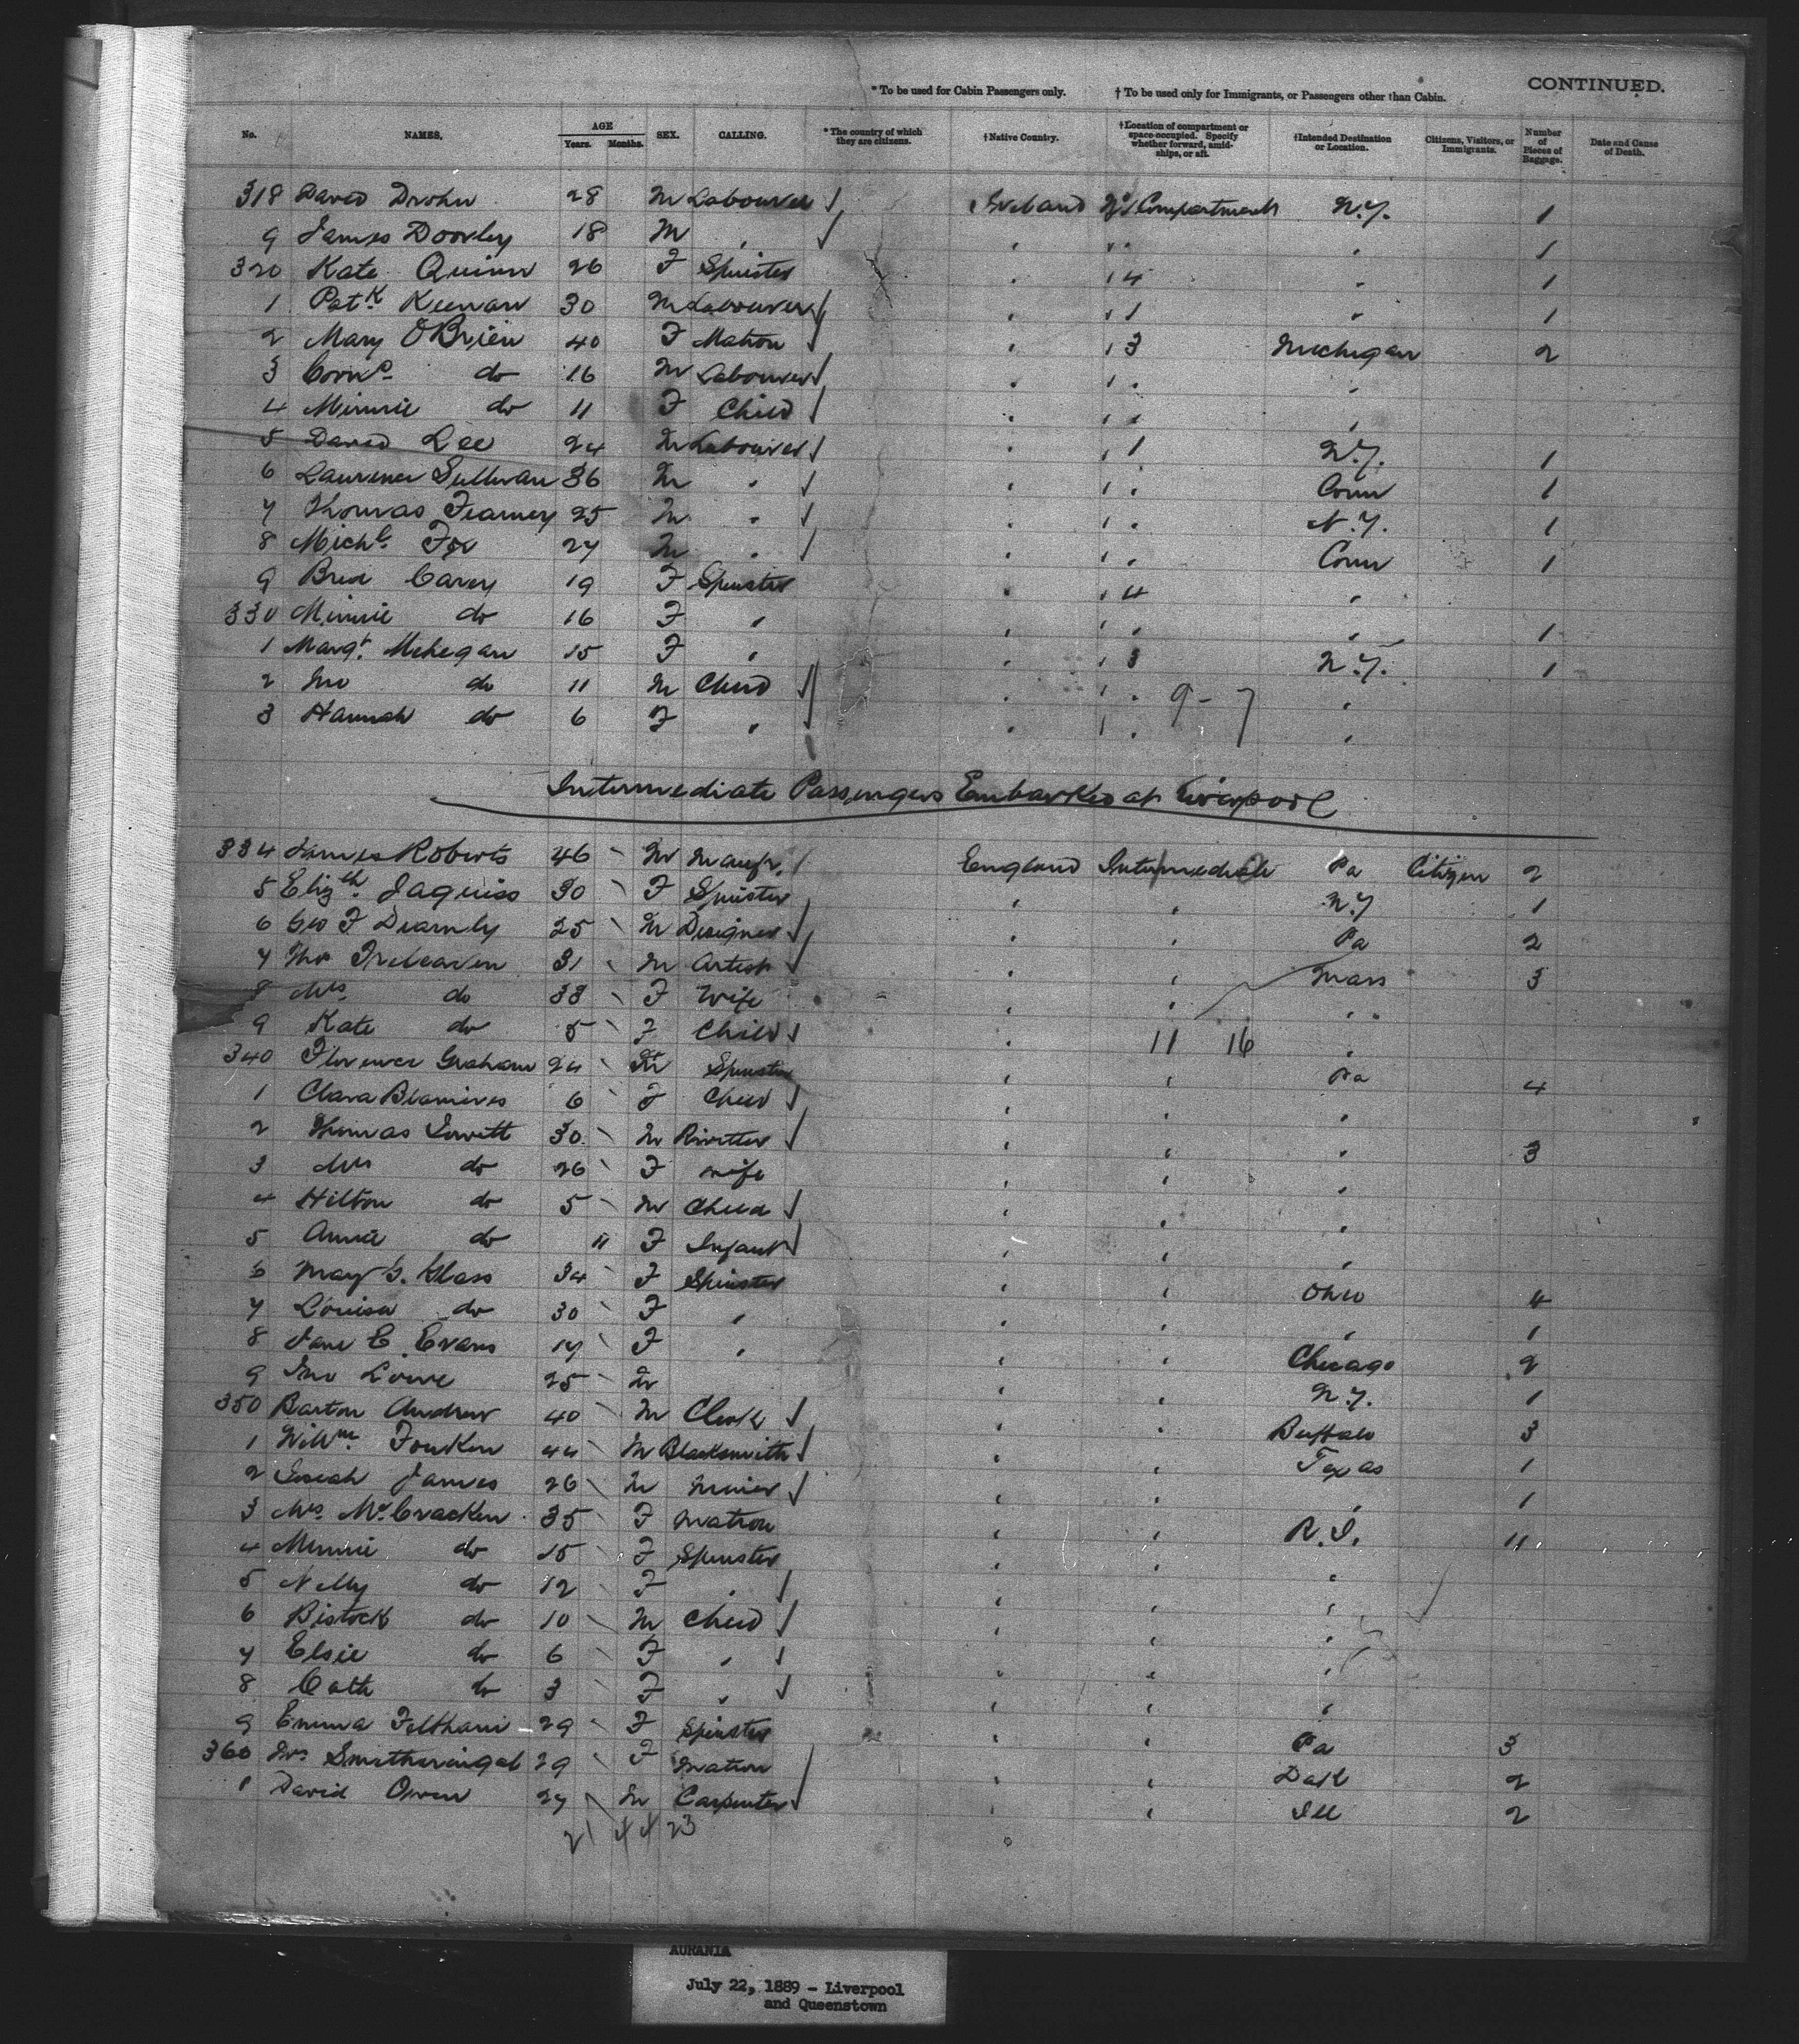 CONTINUED.
* To be used for Cabin Passengers only. † To be used only for Immigrants, or Passengers other than Cabin.
No. NAMES. AGE Years. Months. SEX. CALLING. * The country of which they are citizens. † Native Country. † Location of compartment or space occupied. Specify whether forward, amidships, or aft. † Intended Destination or Location. Citizens, Visitors, or Immigrants. Number of Pieces of Baggage. Date and Cause of Death.
318 David Drohn 28 M Labourer Ireland No 1 Compartment N.Y. 1
9 James Doorley 18 M " " " " " 1
320 Kate Quinn 26 F Spinster " " 4 " 1
1 Patk Keenan 30 M Labourer " " 1 " 1
2 Mary O'Brien 40 F Matron " " 3 Michigan 2
3 Corns do 16 M Labourer " " " "
4 Minnie do 11 F Child " " " "
5 David Lee 24 M Labourer " " 1 N.Y. 1
6 Laurence Sullivan 36 M " " " " Conn 1
7 Thomas Fearney 25 M " " " " N.Y. 1
8 Michl. Fox 27 M " " " " Conn 1
9 Brid Carey 19 F Spinster " " 4 "
330 Minnie do 16 F " " " " " 1
1 Margt. Mehegan 15 F " " " 3 N.Y. 1
2 Jno do 11 M Child " " " 9 - 7 "
3 Hannah do 6 F " " " " "
Intermediate Passengers Embarked at Liverpool
334 James Roberts 46 M Manufr. England Intermediate Pa Citizen 2
5 Elizth. Jaquiss 30 F Spinster " " N.Y 1
6 Geo F Dearnly 25 M Designer " " Pa 2
7 Thos Treleaven 31 M Artist " " Mass 3
8 Mrs do 33 F Wife " " "
9 Kate do 5 F Child " 11 16 "
340 Florence Graham 24 F Spinster " " Pa 4
1 Clara Blamires 6 F Child " " "
2 Thomas Lowett 30 M Rivetter " " " 3
3 Mrs do 26 F Wife " " "
4 Hilton do 5 M Child " " "
5 Annie do 11 F Infant " " "
6 Mary G. Glass 34 F Spinster " " Ohio 4
7 Louisa do 30 F " " " " 1
8 Jane E. Evans 17 F " " " Chicago 2
9 Jno Lowe 25 M " " N.Y. 1
350 Barton Andrew 40 M Clerk " " Buffalo 3
1 Willm. Fouken 44 M Blacksmith " " Texas 1
2 Josiah James 26 M Miner " " " 1
3 Mrs. McCracken 35 F Matron " " R.I. 11
4 Minnie do 15 F Spinster " " "
5 Nelly do 12 F " " " "
6 Bistock do 10 M Child " " "
7 Elsie do 6 F " " " "
8 Cath do 3 F " " " "
9 Emma Feltham 29 F Spinster " " Pa 3
360 Mrs. Smitheringal 29 F Matron " " Dak 2
1 David Owen 27 M Carpenter " " Ill 2
21 44 23
AURANIA
July 22, 1889 - Liverpool
and Queenstown